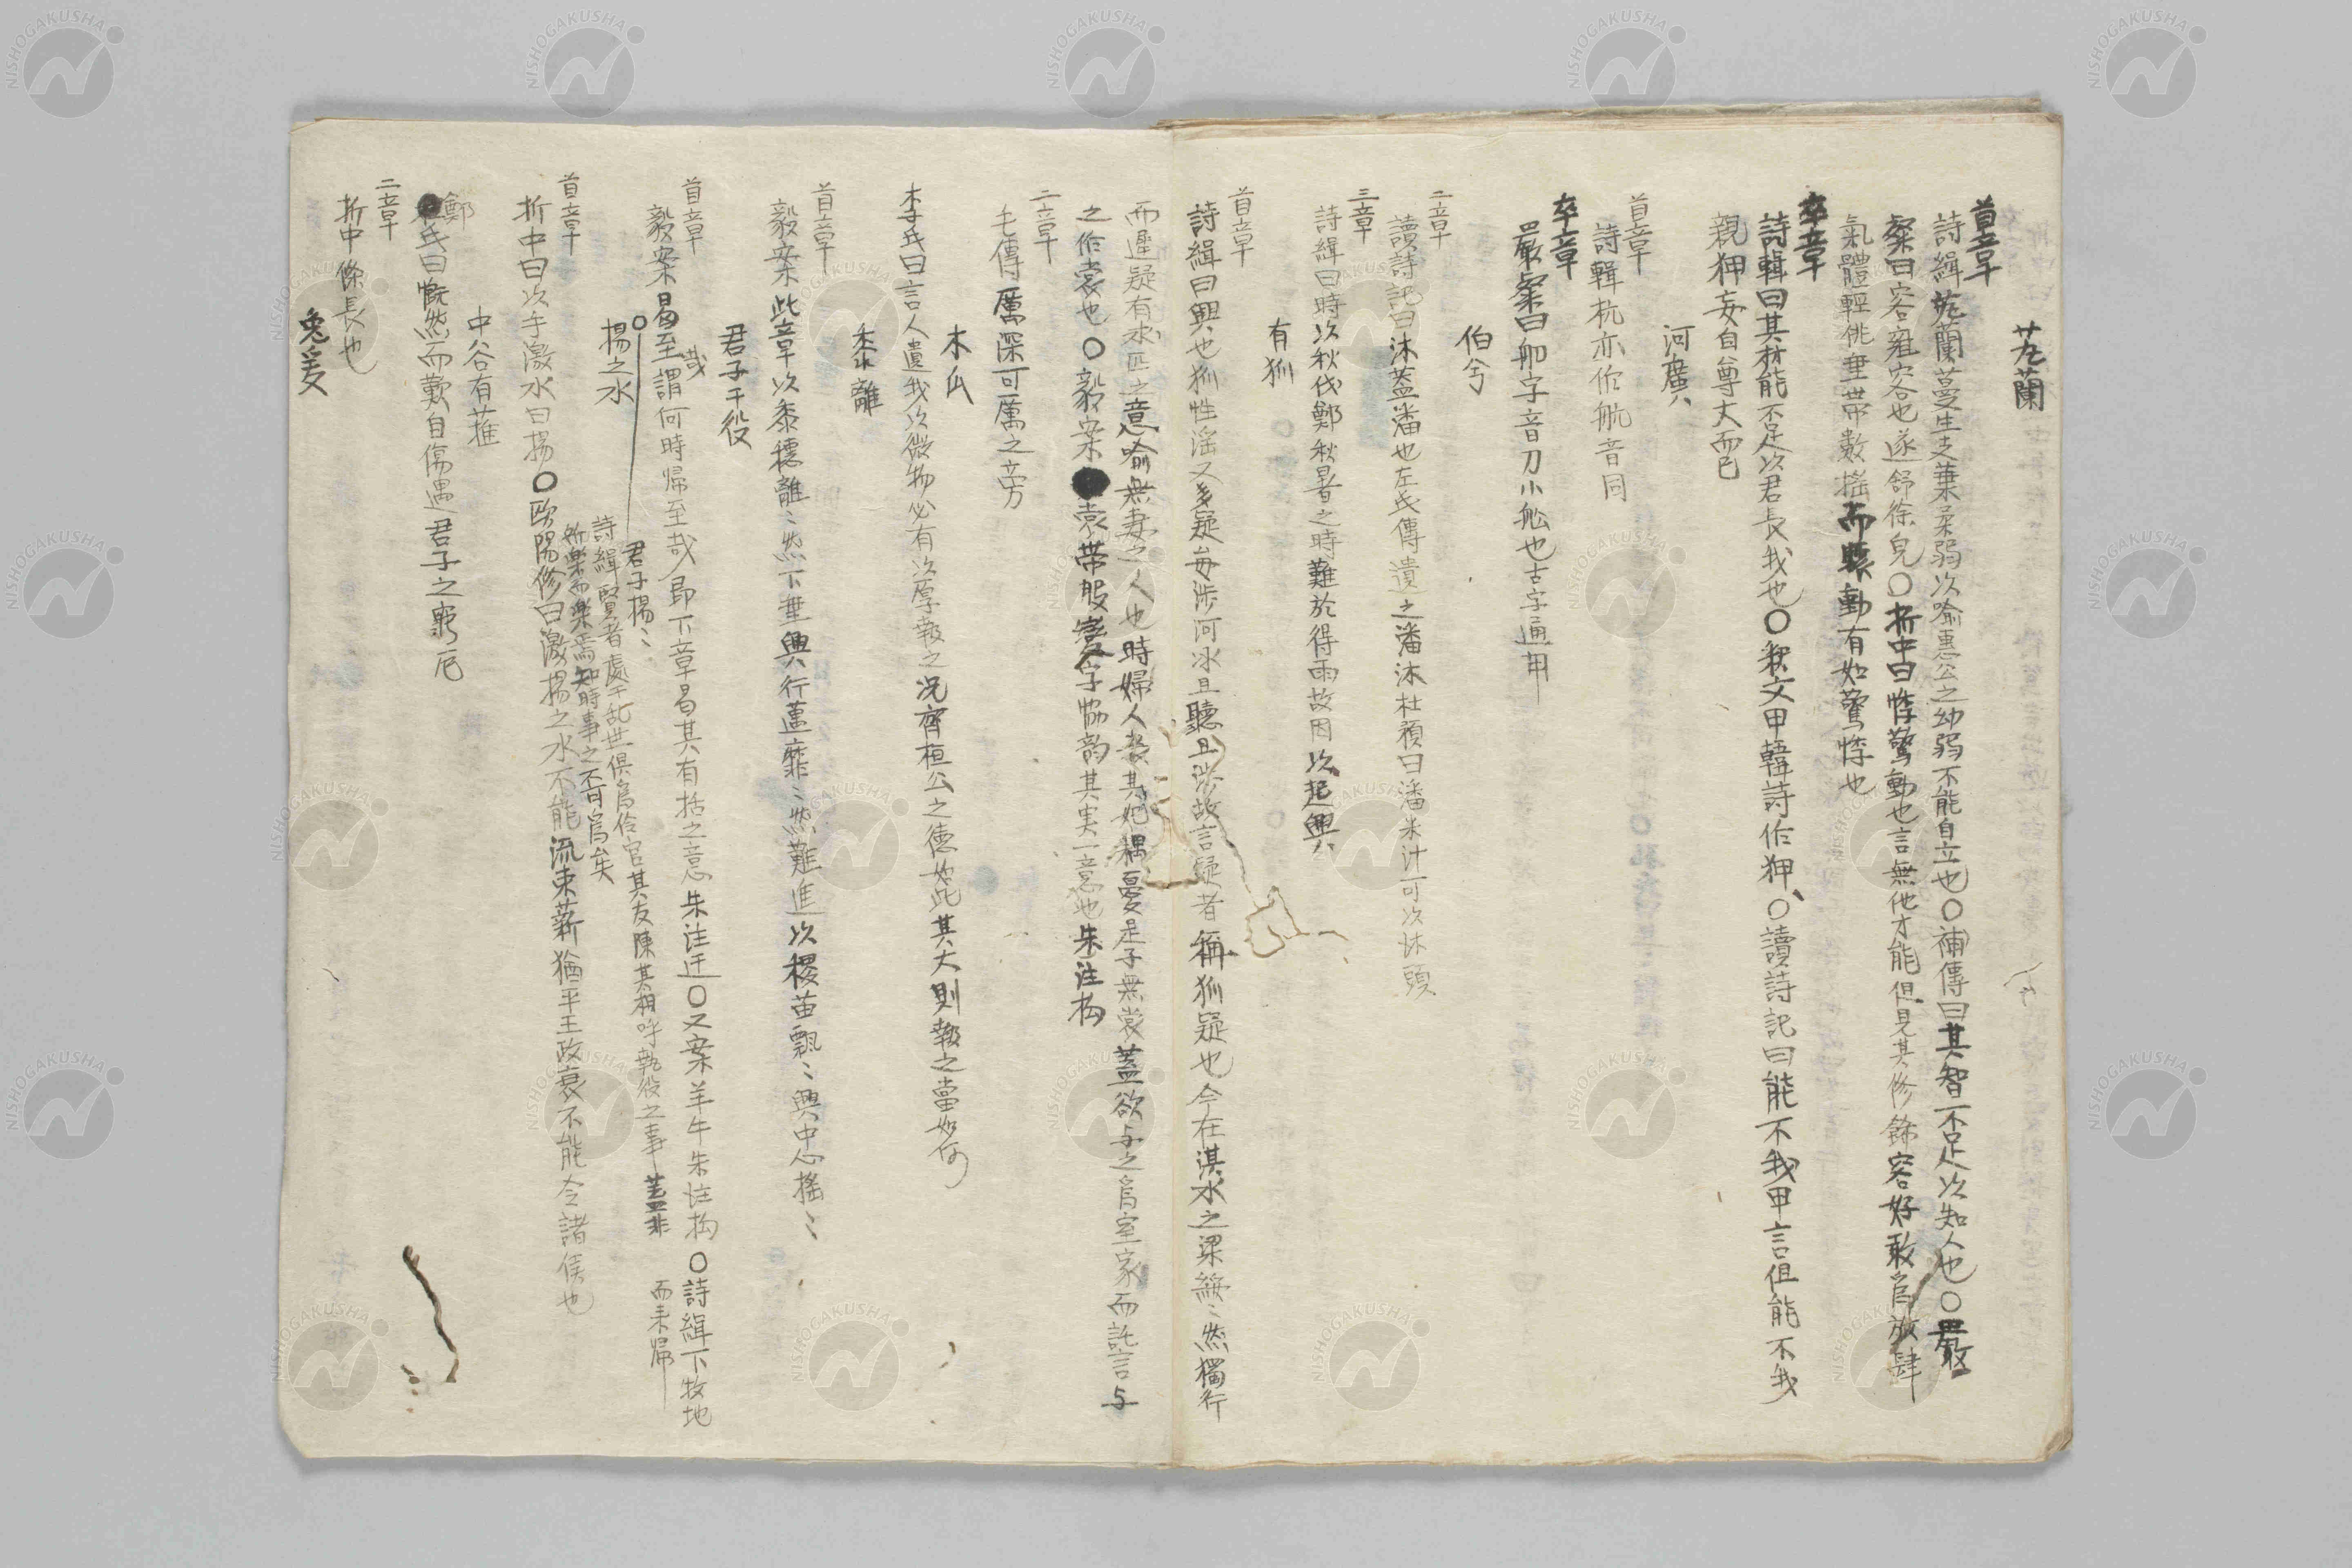 芄蘭
首章
詩緝芄蘭蔓生支葉柔弱以喻惠公之幼弱不能自立也○補傳曰其智不足以知人也○嚴
粲曰容雍容也遂舒徐皃○折中曰悸驚動也言無他才能但見其修飾容好敢爲放肆
氣體輕佻垂帶數搖而驟動有如驚悸也
卒章
詩輯曰其材能不足以君長我也○釈文甲韓詩作狎、○讀詩記曰能不我甲言但能不我
親狎妄自尊大而已
河廣
首章
詩輯杭亦作航音同
卒章
嚴粲曰舠字音刀小舩也古字通用
伯兮
二章
讀詩記曰沐蓋潘也左氏傳遺之潘沐杜預曰潘米汁可以沐頭
三章
詩緝曰時以秋伐鄭秋暑之時難於得雨故因以起興
有狐
首章
詩緝曰興也狐性淫又多疑每涉河冰且聽且涉故言疑者稱狐疑也今在淇水之梁綏〻然獨行
而遲疑有求匹之意喻無妻之人也時婦人喪其妃耦憂是子無裳蓋欲与之爲室家而託言与
之作裳也○毅案裳帶服變字協韵其実一意也朱注拘
二章
毛傳厲深可厲之旁
木瓜
李氏曰言人遺我以微物必有以厚報之况齊桓公之德如此其大則報之當如何
黍離
首章
毅案此章以黍穗離〻然下垂興行邁靡〻然難進以稷苗飄〻興中心搖〻
君子于役
首章
毅案曷至哉謂何時帰至哉即下章曷其有括之意朱注迂○又案羊牛朱注拘○詩緝下牧地
而来帰
君子揚〻
詩緝賢者處于乱世俱爲伶官其友陳其相呼執役之事蓋非
所樂而樂焉知時事之不可爲矣
揚之水
首章
折中曰以手激水曰揚○欧陽修曰激揚之水不能流束薪猶平王政衰不能令諸侯也
中谷有蓷
鄭氏曰慨然而歎自傷遇君子之窮厄
二章
折中條長也
兔爰